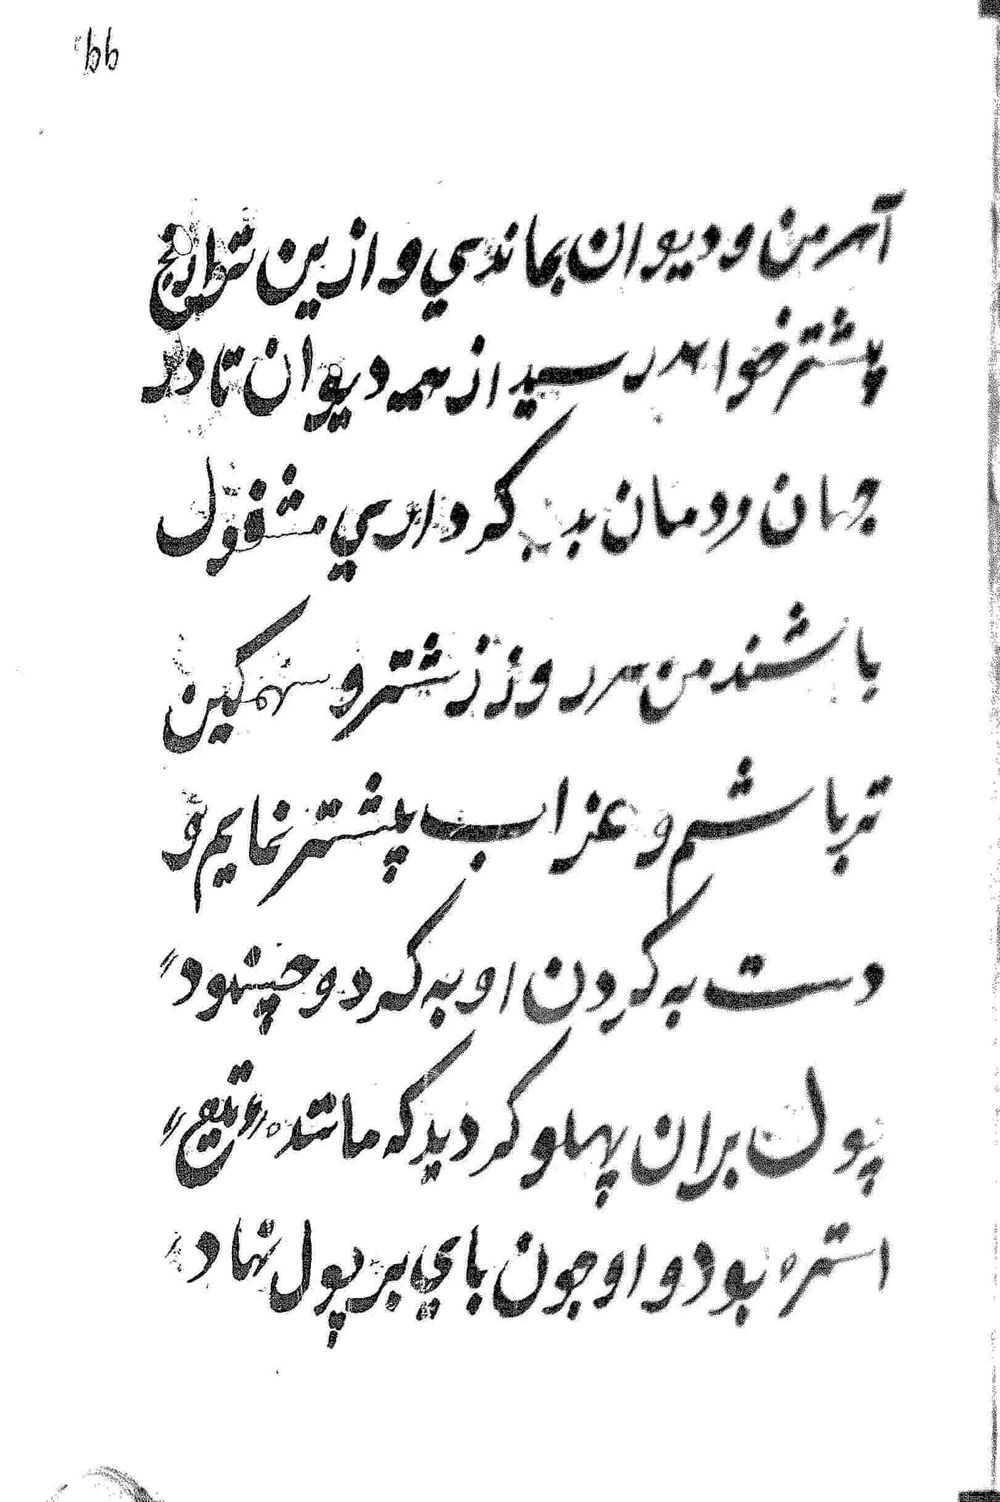 آهرمن و دیوان بماندی و ازین ترا رنج
پشتر خواهد رسید از همه دیوان تا در
جهان مردمان بدین کرداری مشغول
باشند من هر روز زشتر و سهمکین
تر باشم و عذاب پیشتر نمایم و
دست به کردن او به کرد و چینود
پول بران پهلو کردید که مانند تیغ
استره بود و او چون پای بر پول نهاد